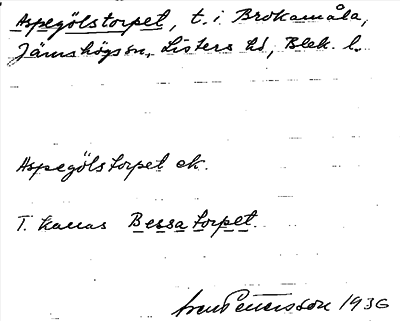 Aspegölstorpet, t. i Brokamåla,
Jämshögs sn, Listers hd, Blek. l.
Aspegölstorpet ek.
T. kallas Bessatorpet.
Sven Petersson 1936